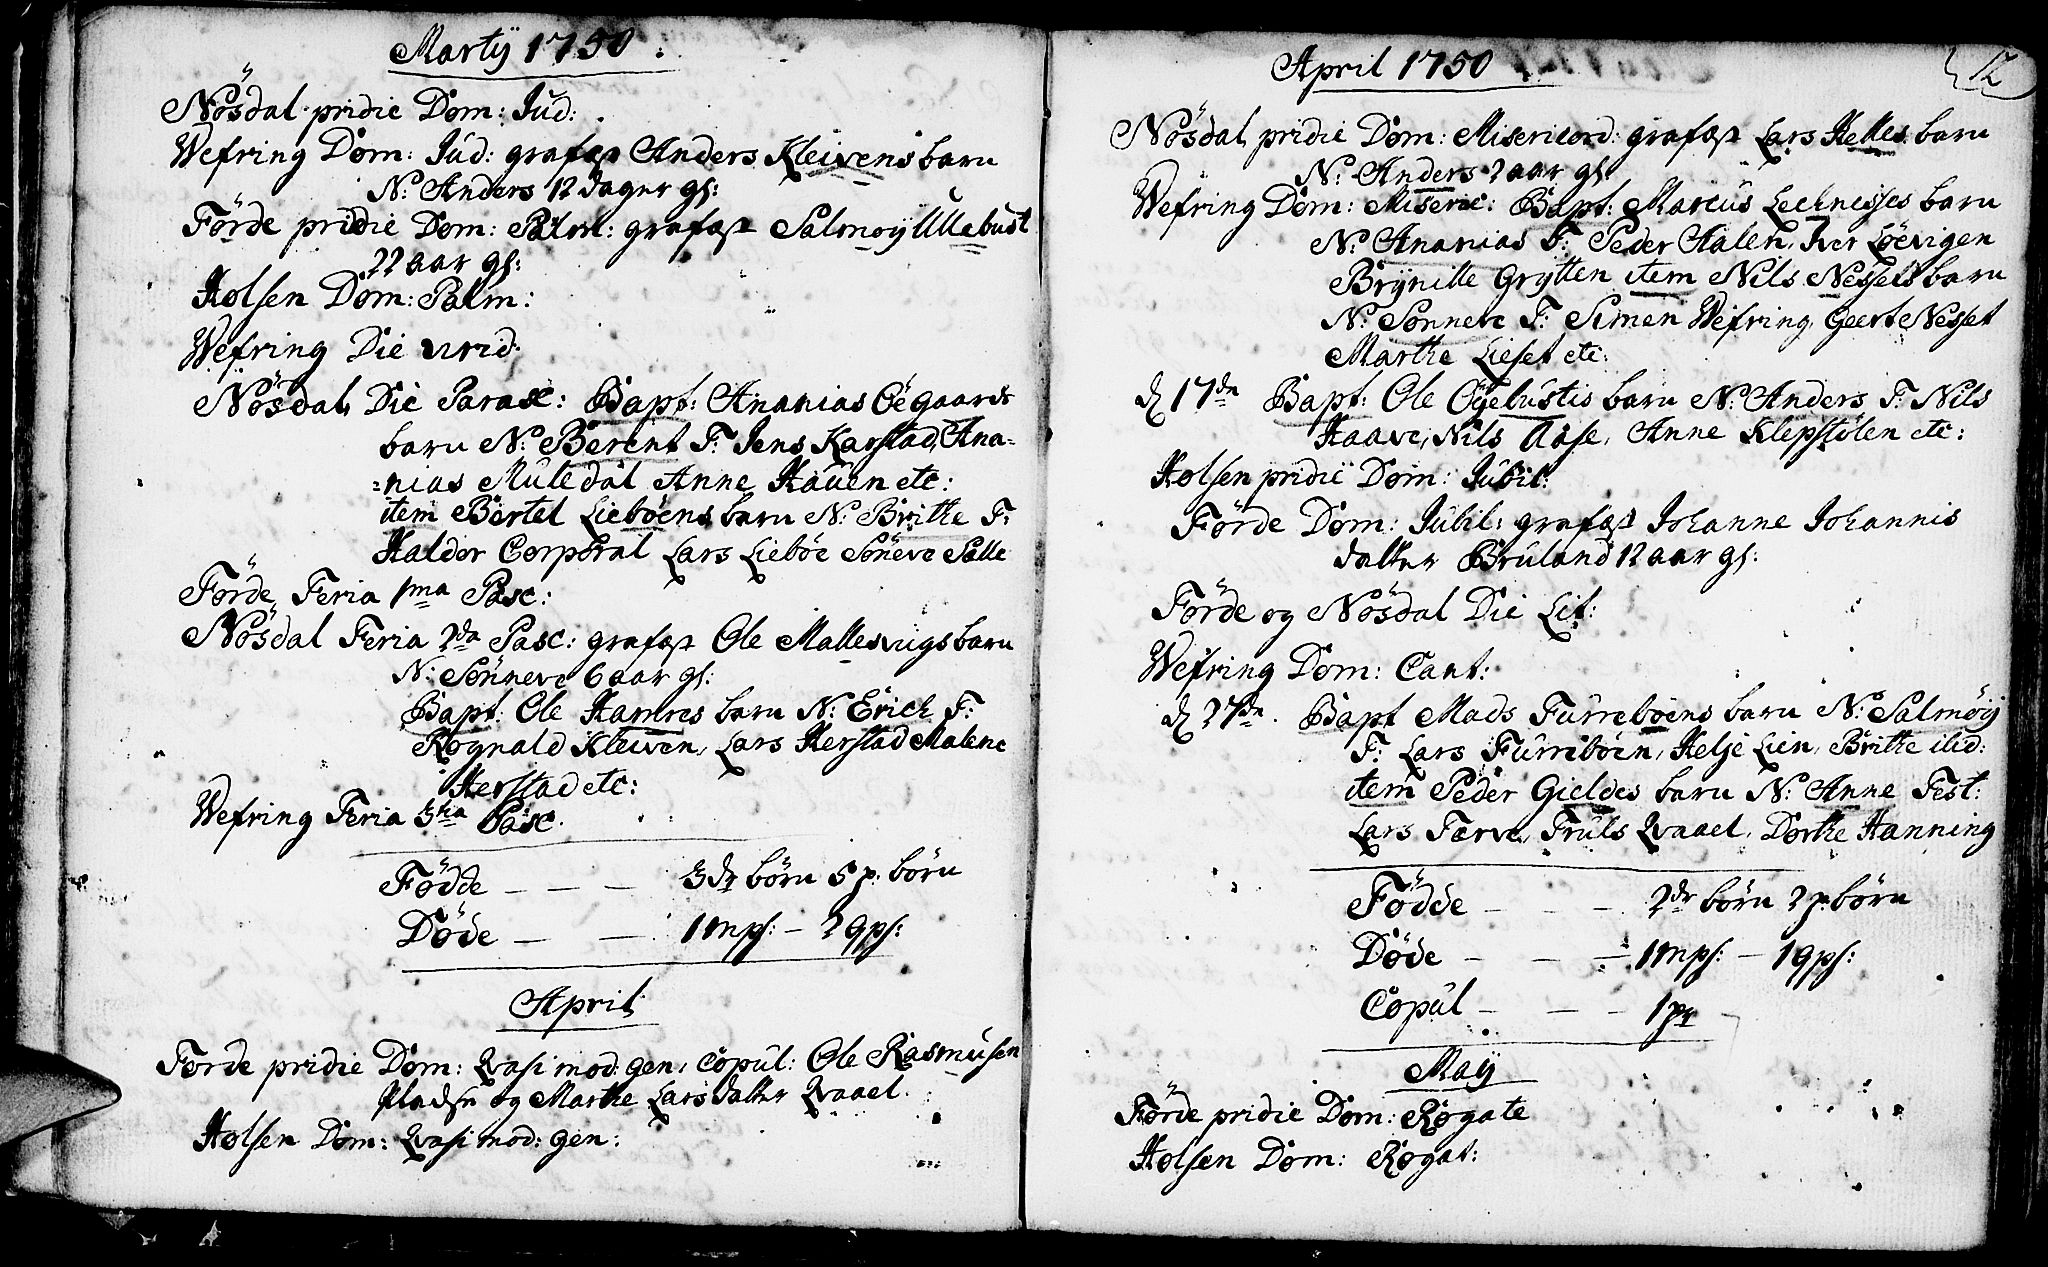 Martij 1750.
Nösdal pridie Dom: Jud:
Wefring Dom: Jud: grafæst Anders Kleivens barn
N: Anders 12 dager gl:
Förde pridie Dom: Palm: grafæst Salmoÿ Ullebust
22 aar gl:
Holsen Dom: Palm:
Wefring Die virid:
Nösdal Die Parasc: Bapt: Ananias Öegaards
barn N: Berent F: Jens Karstad, Ana=
=nias Mutedal Anne Hauen etc:
item Bertel Lieböens barn N: Brithe F:
Haldor Corporal Lars Lieböe Söneve Salle
Förde Feria 1ma Pasc:
Nösdal Feria 2da Pasc: grafæst Ole Mallesvigs barn
N: Sönneve 6 aar gl:
Bapt: Ole Hamres barn N: Erich F:
Rognald Kleiven, Lars Herstad Malene
Herstad etc:
Wefring Feria 3tia Pasc.
Födde — — — 3 dr börn 5 p. börn
Döde — — 1 mps: — 2 qps:
April
Förde pridie Dom: Qvasi mod: gen: Copul: Ole Rasmusen
Pladsen og Marthe Larsdatter Qvaael.
Holsen Dom: Qvasi mod: gen:
April 1750
12
Nösdal pridie Dom: Misericord: grafæst Lars Helles barn
N: Anders 2 aar gl:
Wefring Dom: Miseric: Bapt: Marcus Lechnesses barn
N: Ananias F: Peder Halen, Iver Löevigen
Brÿnille Grÿtten item Nils Nessets barn
N: Sönneve F: Simen Wefring, Geert Nesset
Marthe Lieset etc:
d 17de Bapt: Ole Öÿebustis barn N: Anders F: Nils
Haave, Nils Aase, Anne Klepstölen etc:
Holsen pridie Dom: Jubil:
Förde Dom: Jubil: grafæst Johanne Johannis
datter Bruland 12 aar gl:
Förde og Nösdal Die Lit:
Wefring Dom: Cant:
d 27de. Bapt Mads Furreböens barn N: Salmöÿ
F: Lars Furreböen, Helje Lien, Brithe ibid:
item Peder Gieldes barn N: Anne Test:
Lars Farve, Truls Qvaael, Dorthe Hanning
Födde — — — 2 dr börn 2 p. börn
Döde — — — 1 mps: — 1 qps:
Copul — — — 1 pr
Maÿ
Förde pridie Dom: Rogate
Holsen Dom: Rogat: